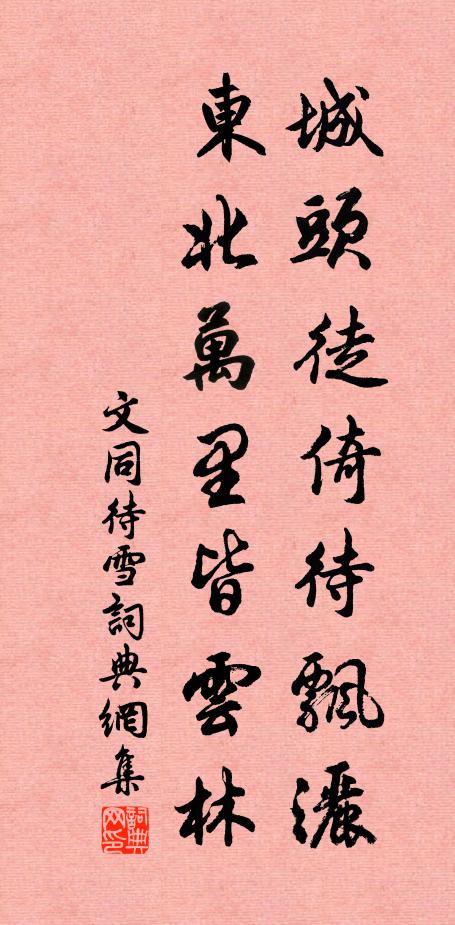 城頭徒倚待飄灑
東北萬里皆雲林
文同待雪詞典網集
詞典网印